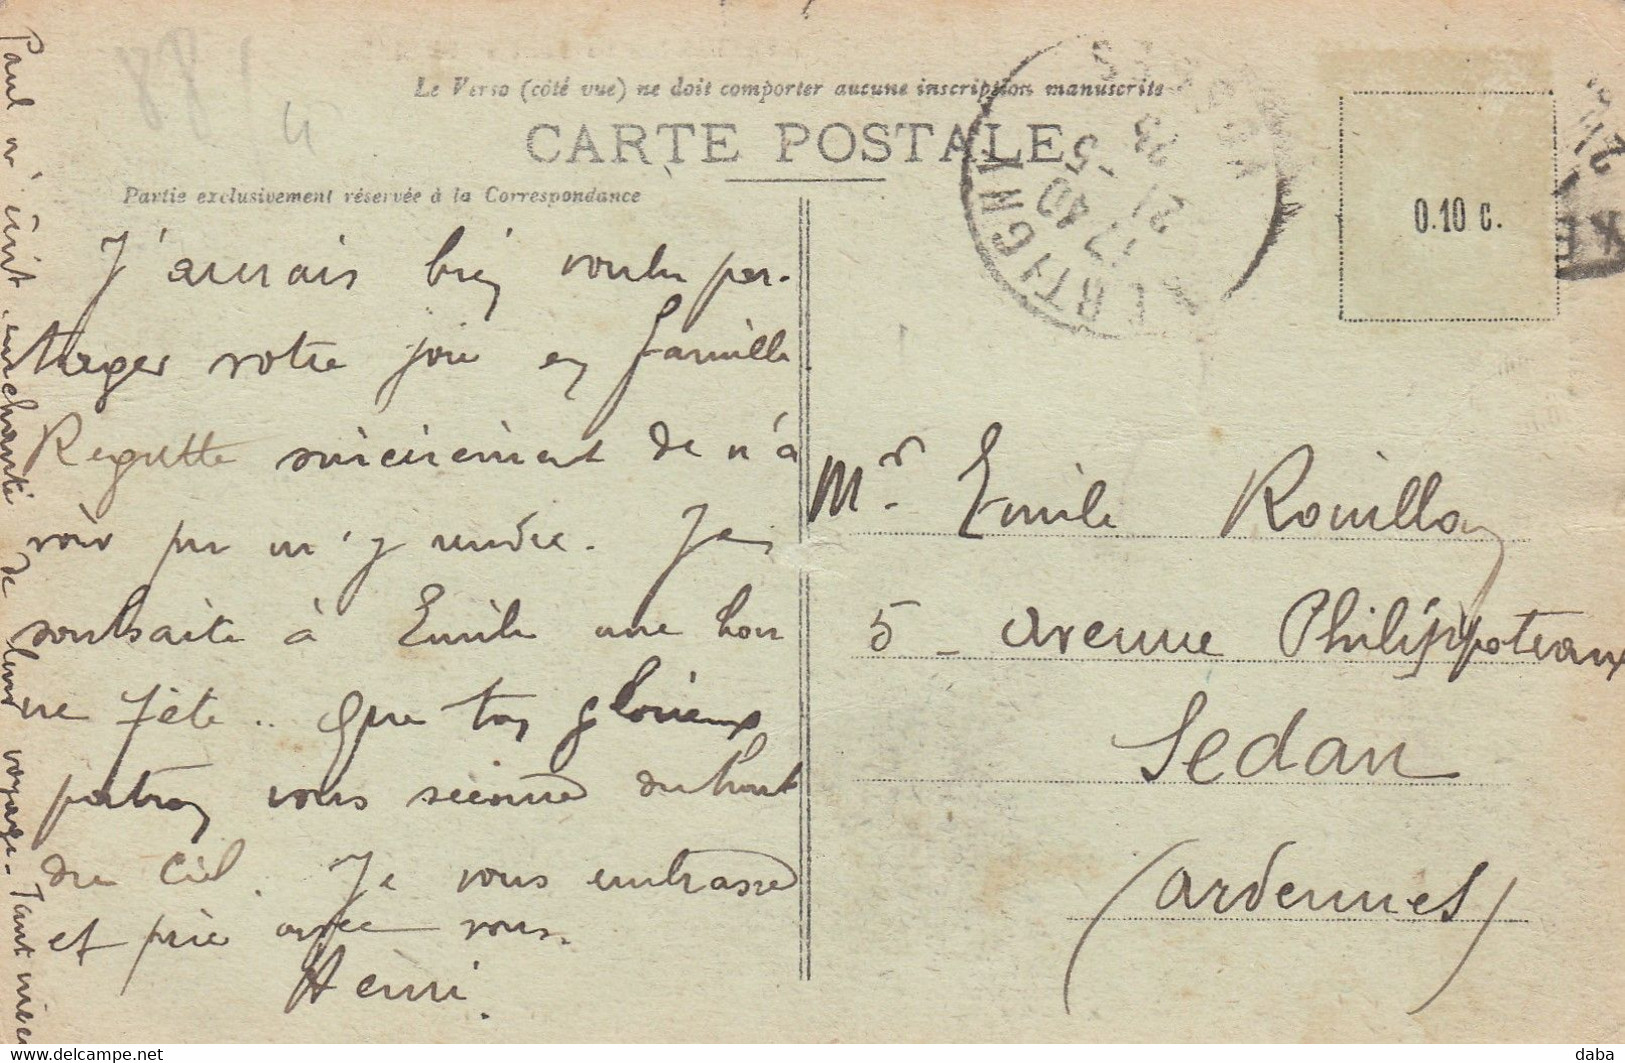 Le Verso (côté vue) ne doit comporter aucune inscription manuscrite
CARTE POSTALE
Partie exclusivement réservée à la Correspondance
0.10 c.
J'aurais bien voulu par-
tager votre joie en famille
Regrette sincèrement de n'a
voir pu m'y rendre. Je
souhaite à Emile une bon
ne fête .. Que ton glorieux
patron vous seconde du haut
du Ciel. Je vous embrasse
et prie avec vous.
Henri.
Paul m'écrit, enchanté de leur voyage. Tant mieux
Mr. Emile Rouillon
5 - avenue Philippoteaux
Sedan
(Ardennes)
VOSGES
17 40
21 -5
23
delcampe.net
daba